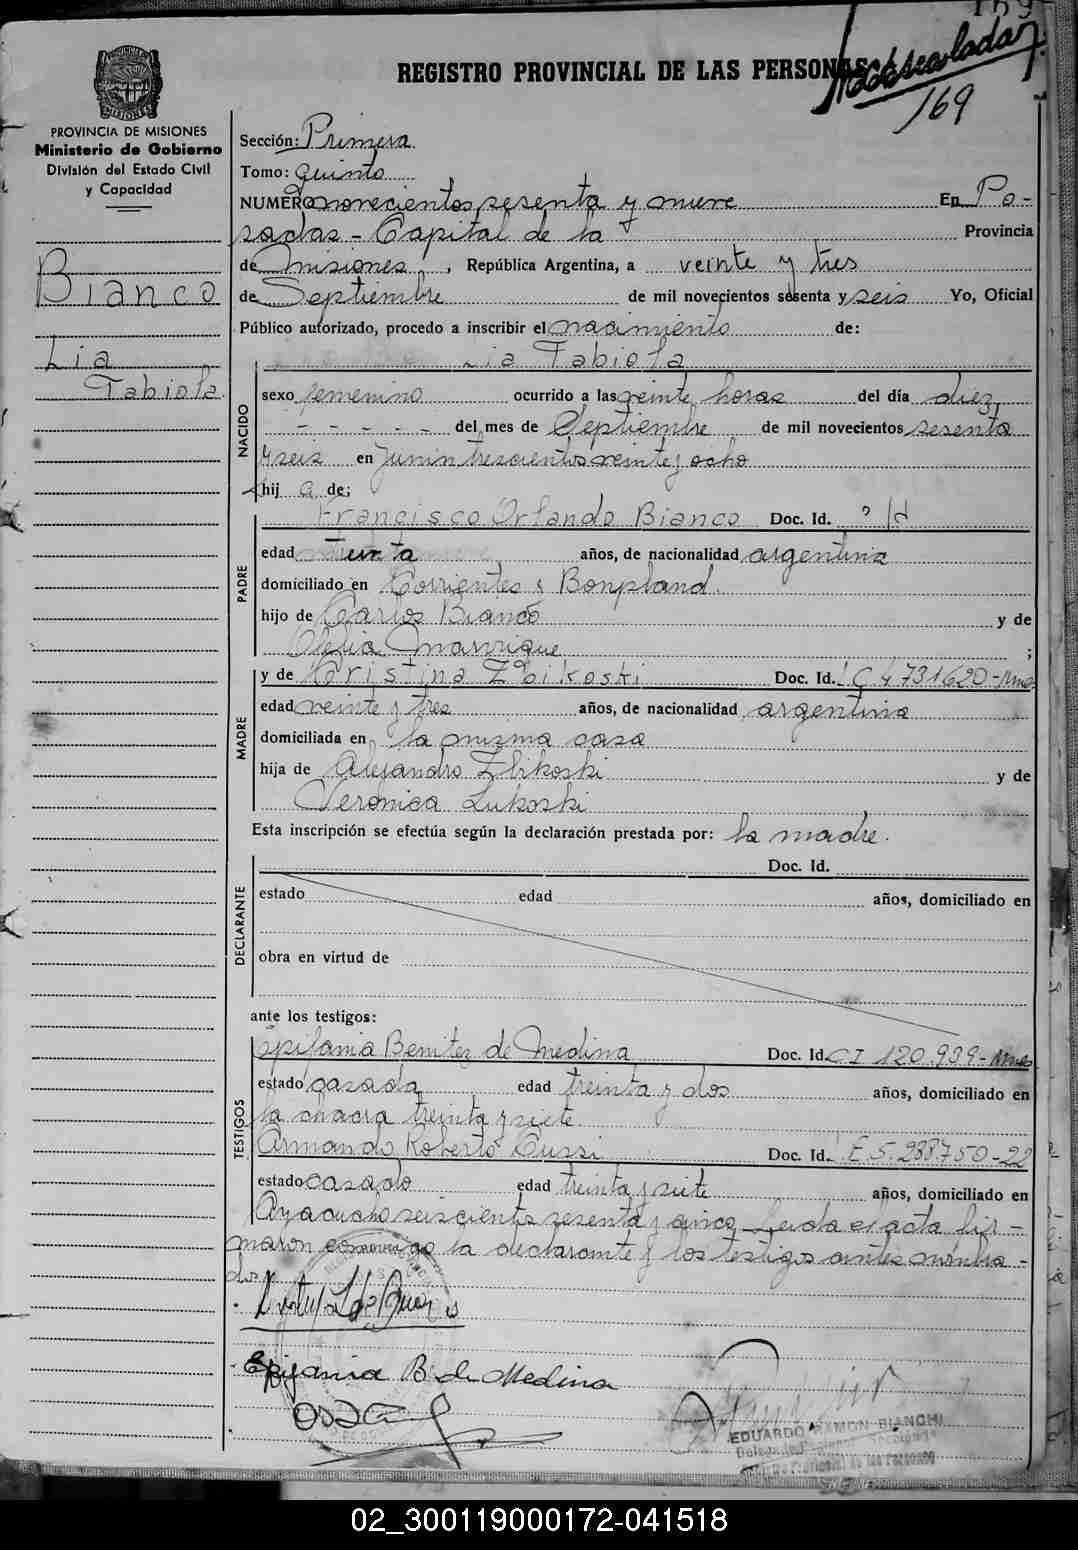 REGISTRO PROVINCIAL DE LAS PERSONAS
169
PROVINCIA DE MISIONES
Ministerio de Gobierno
División del Estado Civil
y Capacidad
Bianco
Lia
Fabiola
Sección: Primera
Tomo: Quinto
NUMERO novecientos sesenta y nueve En Po-
sadas - Capital de la Provincia
de Misiones, República Argentina, a veinte y tres
de Septiembre de mil novecientos sesenta y seis Yo, Oficial
Público autorizado, procedo a inscribir el nacimiento de:
Lia Fabiola
NACIDO
sexo femenino ocurrido a las veinte horas del día diez
- - - - - del mes de Septiembre de mil novecientos sesenta
y seis en Junin trescientos veinte y ocho
hij a de:
PADRE
Francisco Orlando Bianco Doc. Id.
edad treinta años, de nacionalidad argentina
domiciliado en Corrientes y Bonpland.
hijo de Carlos Bianco y de
Manrique ;
MADRE
y de Cristina Zbikoski Doc. Id. C 4731620-Mnes
edad veinte y tres años, de nacionalidad argentina
domiciliada en la misma casa
hija de Alejandro Zbikoski y de
Veronica Lukoski
Esta inscripción se efectúa según la declaración prestada por: la madre.
DECLARANTE
Doc. Id.
estado edad años, domiciliado en
obra en virtud de
ante los testigos:
TESTIGOS
Epifania Benitez de Medina Doc. Id. CI 120.939-Mnes
estado casada edad treinta y dos años, domiciliado en
la chacra treinta y siete
Armando Roberto Doc. Id. E.5.288750-22
estado casado edad treinta y siete años, domiciliado en
Ayacucho seiscientos sesenta y cinco. Leida el acta fir-
maron conmigo la declarante y los testigos antes nombra-
dos
Epifania B. de Medina
EDUARDO RAMON BIANCHI
02_300119000172-041518